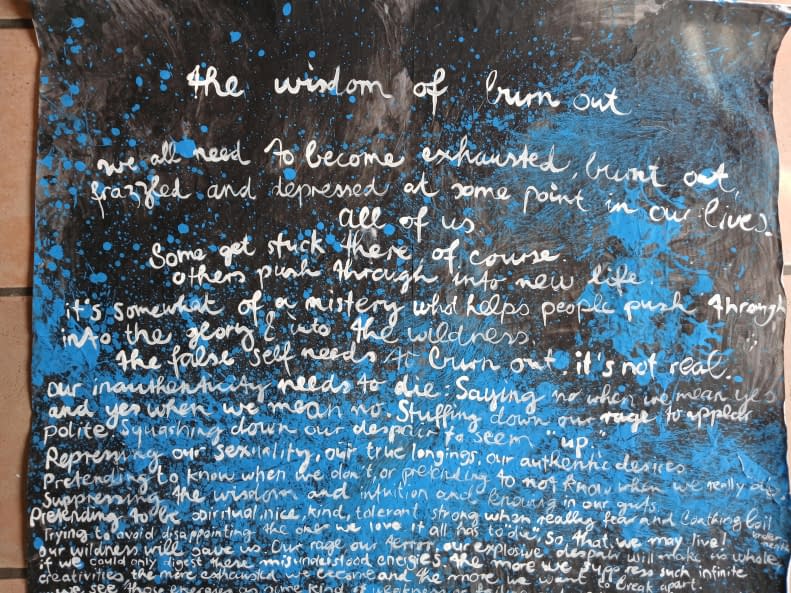 the wisdom of burn out
we all need to become exhausted, burnt out,
frazzled and depressed at some point in our lives.
all of us
Some get stuck there, of course.
others push through into new life.
it's somewhat of a mistery who helps people push through
into the glory & into the wildness.
the false self needs to burn out. it's not real.
our inauthenticity needs to die: Saying no when we mean yes
and yes when we mean no. Stuffing down our rage to appear
polite, squashing down our despair to seem "up."
Repressing our sexuality, our true longings, our authentic desires.
Pretending to know when we don't, or pretending to not know when we really do,
Suppressing the wisdom and intuition and knowing in our guts.
Pretending to be spiritual, nice, kind, tolerant, strong when really fear and loathing boil
underneath
Trying to avoid disappointing the ones we love it all has to "die" so that we may live!
our wildness will save us. Our rage our terror, our explosive despair will make us whole
if we could only digest these misunderstood energies. the more we suppress such infinite
creativities the more exhausted we become and the more we want to break apart.
we see those energies as some kind of weakness or